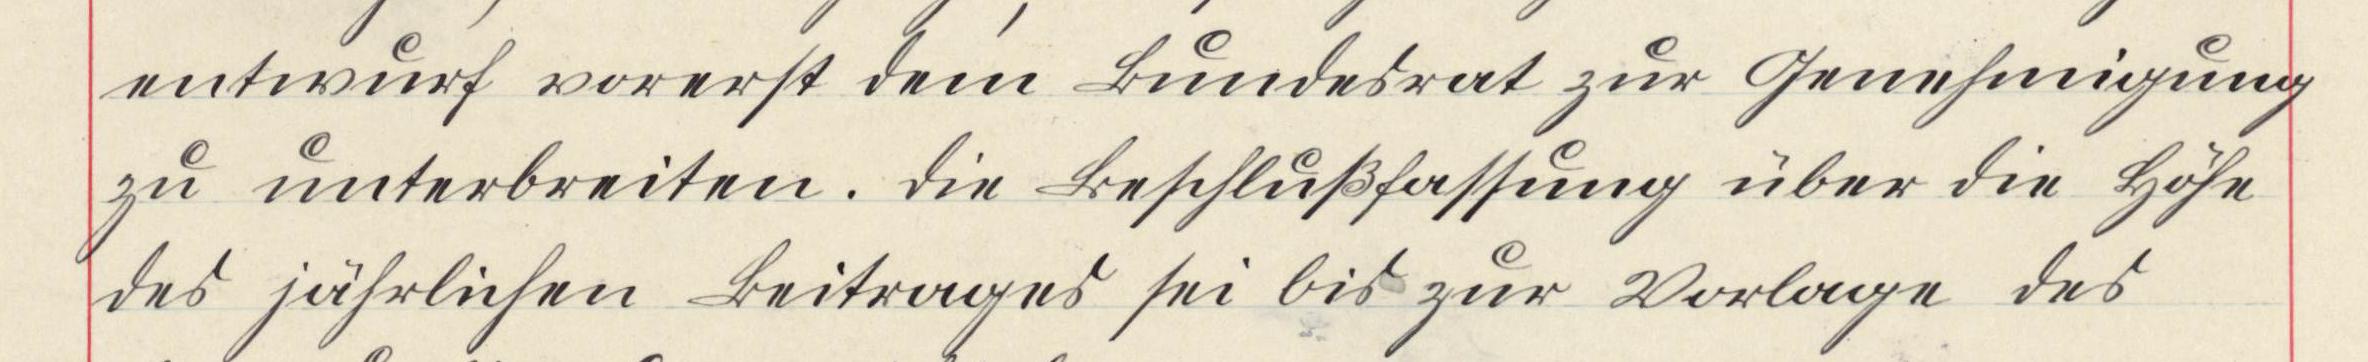 entwurf vorerst dem Bundesrat zur Genehmigung
zu unterbreiten. Die Beschlußfassung über die Höhe
des jährlichen Beitrages sei bis zur Vorlage des